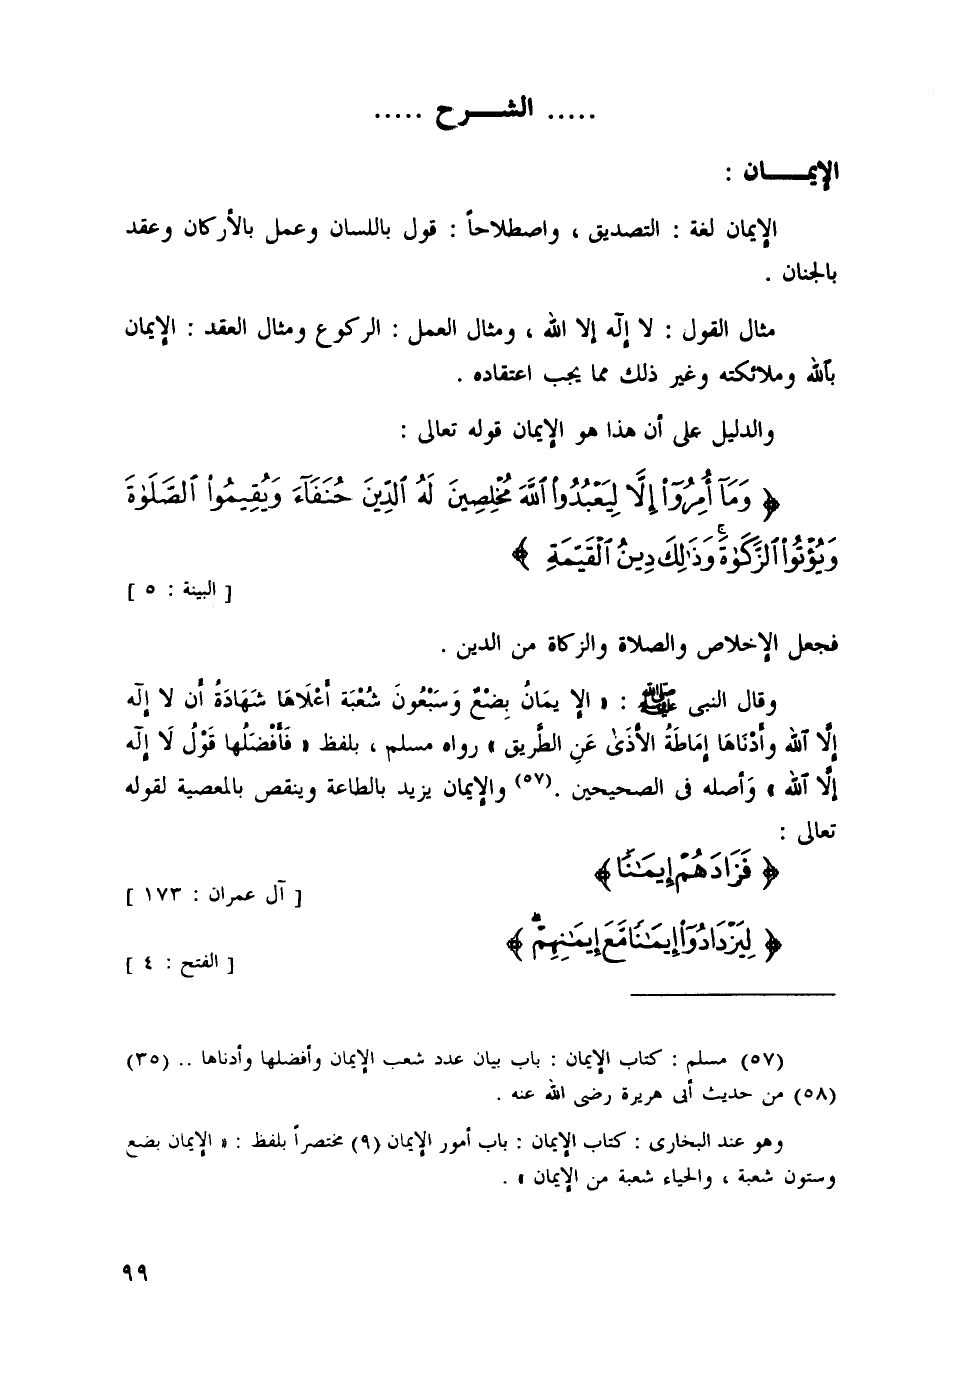 ..... الشـــرح .....
الإيمـــان :
الإيمان لغة : التصديق ، واصطلاحاً : قول باللسان وعمل بالأركان وعقد
بالجنان .
مثال القول : لا إلٰه إلا الله ، ومثال العمل : الركوع ومثال العقد : الإيمان
بالله وملائكته وغير ذلك مما يجب اعتقاده .
والدليل على أن هذا هو الإيمان قوله تعالى :
﴿ وَمَآ أُمِرُوٓا۟ إِلَّا لِيَعْبُدُوا۟ ٱللَّهَ مُخْلِصِينَ لَهُ ٱلدِّينَ حُنَفَآءَ وَيُقِيمُوا۟ ٱلصَّلَوٰةَ
وَيُؤْتُوا۟ ٱلزَّكَوٰةَ ۚ وَذَٰلِكَ دِينُ ٱلْقَيِّمَةِ ﴾
[ البينة : ٥ ]
فجعل الإخلاص والصلاة والزكاة من الدين .
وقال النبى ﷺ : « الإيمَانُ بِضْعٌ وَسَبْعُونَ شُعْبَة أَعْلَاهَا شَهَادَةُ أَن لا إلٰه
إلَّا ٱلله وأَدْنَاهَا إمَاطَةُ الأَذَىٰ عَنِ الطَّريق » رواه مسلم ، بلفظ « فَأَفْضَلُها قَوْلُ لَا إلٰه
إلَّا ٱلله » وَأصله فى الصحيحين .(٥٧) والإيمان يزيد بالطاعة وينقص بالمعصية لقوله
تعالى :
﴿ فَزَادَهُمْ إِيمَٰنًا ﴾
[ آل عمران : ١٧٣ ]
﴿ لِيَزْدَادُوٓا۟ إِيمَٰنًا مَّعَ إِيمَٰنِهِمْ ۗ ﴾
[ الفتح : ٤ ]
(٥٧) مسلم : كتاب الإيمان : باب بيان عدد شعب الإيمان وأفضلها وأدناها .. (٣٥)
(٥٨) من حديث أبى هريرة رضى الله عنه .
وهو عند البخارى : كتاب الإيمان : باب أمور الإيمان (٩) مختصراً بلفظ : « الإيمان بضع
وستون شعبة ، والحياء شعبة من الإيمان » .
٩٩